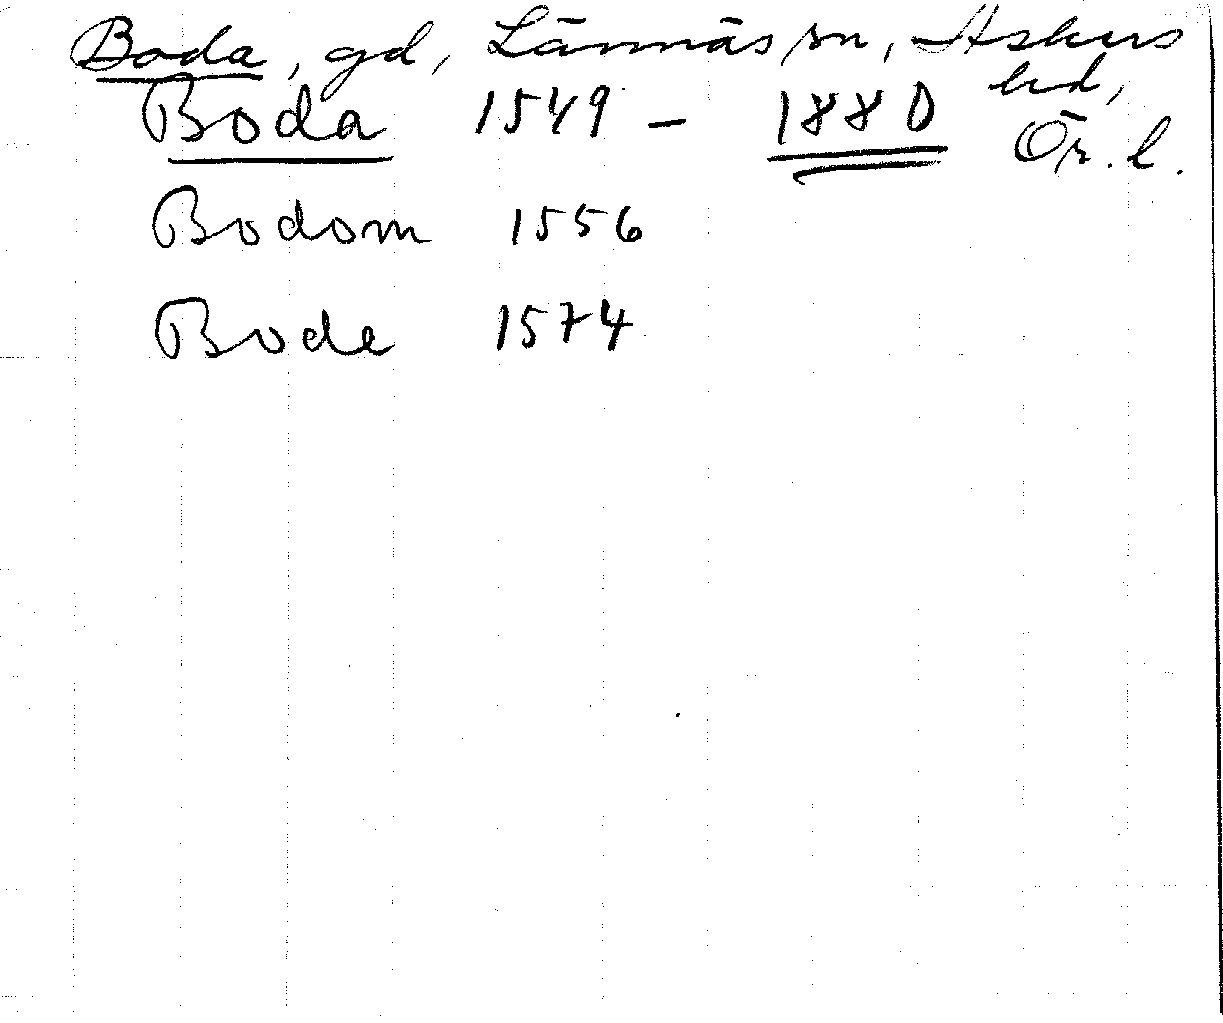 Boda, gd, Lännäs sn, Askers
hd,
Boda 1549 - 1880 Ör. l.
Bodom 1556
Bode 1574